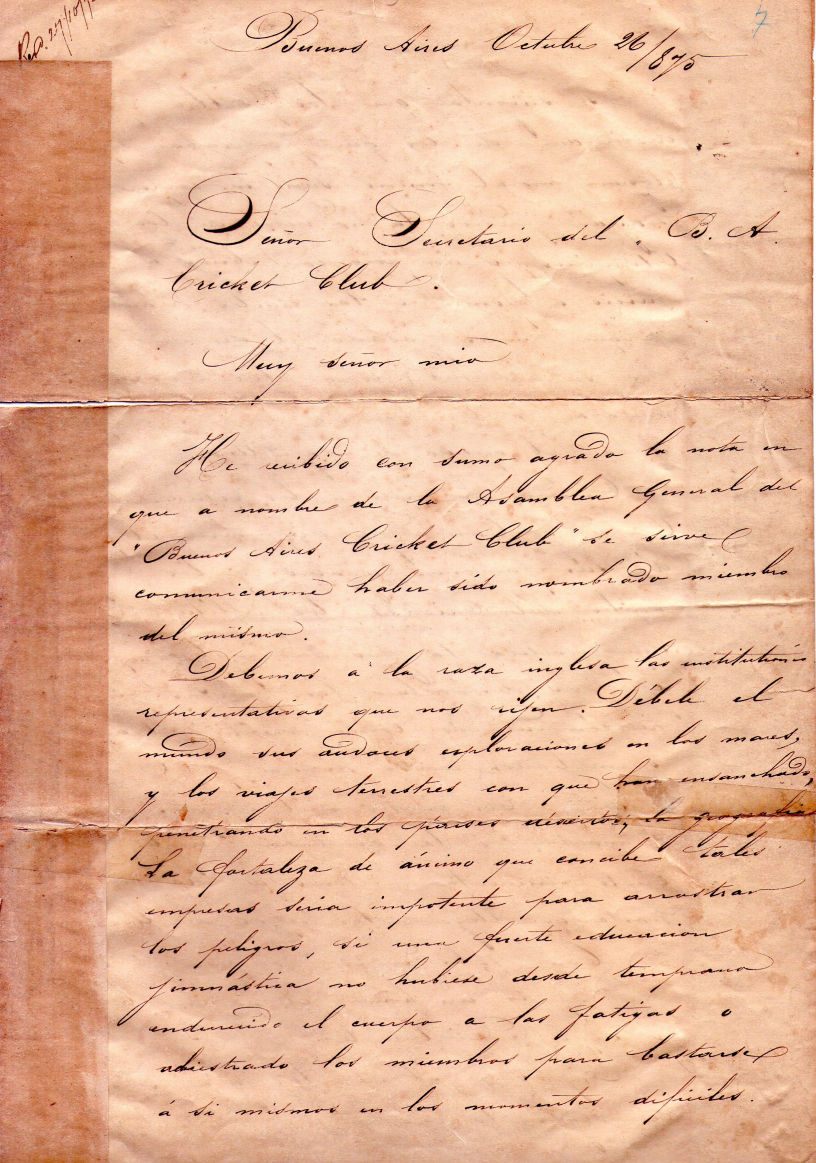 Recd. 27/10/75
7
Buenos Aires Octubre 26/875
Señor Secretario del B. A.
Cricket Club.
Muy señor mio
He recibido con sumo agrado la nota en
que a nombre de la Asamblea General del
"Buenos Aires Cricket Club" se sirve
comunicarme haber sido nombrado miembro
del mismo.
Debemos á la raza inglesa las instituciones
representativas que nos rijen. Débele el
mundo sus audaces esploraciones en los mares,
y los viajes terrestres con que han ensanchado,
penetrando en los paises desiertos, la geografia
La fortaleza de ánimo que concibe tales
empresas seria impotente para arrostrar
los peligros, si una fuerte educacion
jimnástica no hubiese desde temprano
endurecido el cuerpo a las fatigas o
adiestrado los miembros para bastarse
á si mismos en los momentos dificiles.